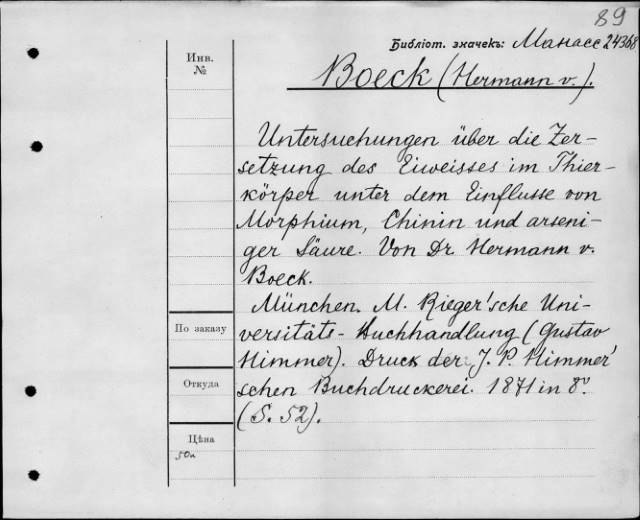 89
Библіот. значекъ: Манасс 24368
Инв.
№
Boeck (Hermann v.).
Untersuchungen über die Zer-
setzung des Eiweisses im Thier-
körper unter dem Einflusse von
Morphium, Chinin und arseni-
ger Säure. Von Dr Hermann v.
Boeck.
München. M. Rieger'sche Uni-
versitäts-Buchhandlung (Gustav
Himmer). Druck der J. P. Himmer'
schen Buchdruckerei. 1871 in 8º.
(S. 52).
По заказу
Откуда
Цѣна
50к